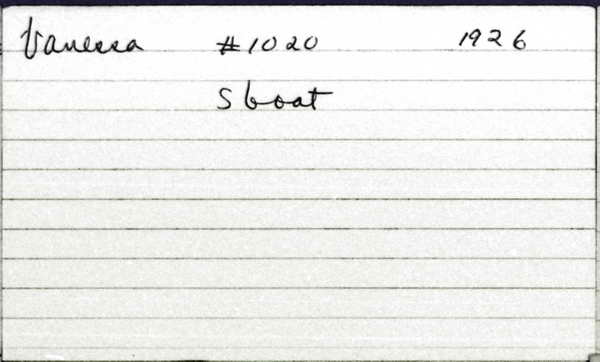 Vanessa #1020 1926
S boat